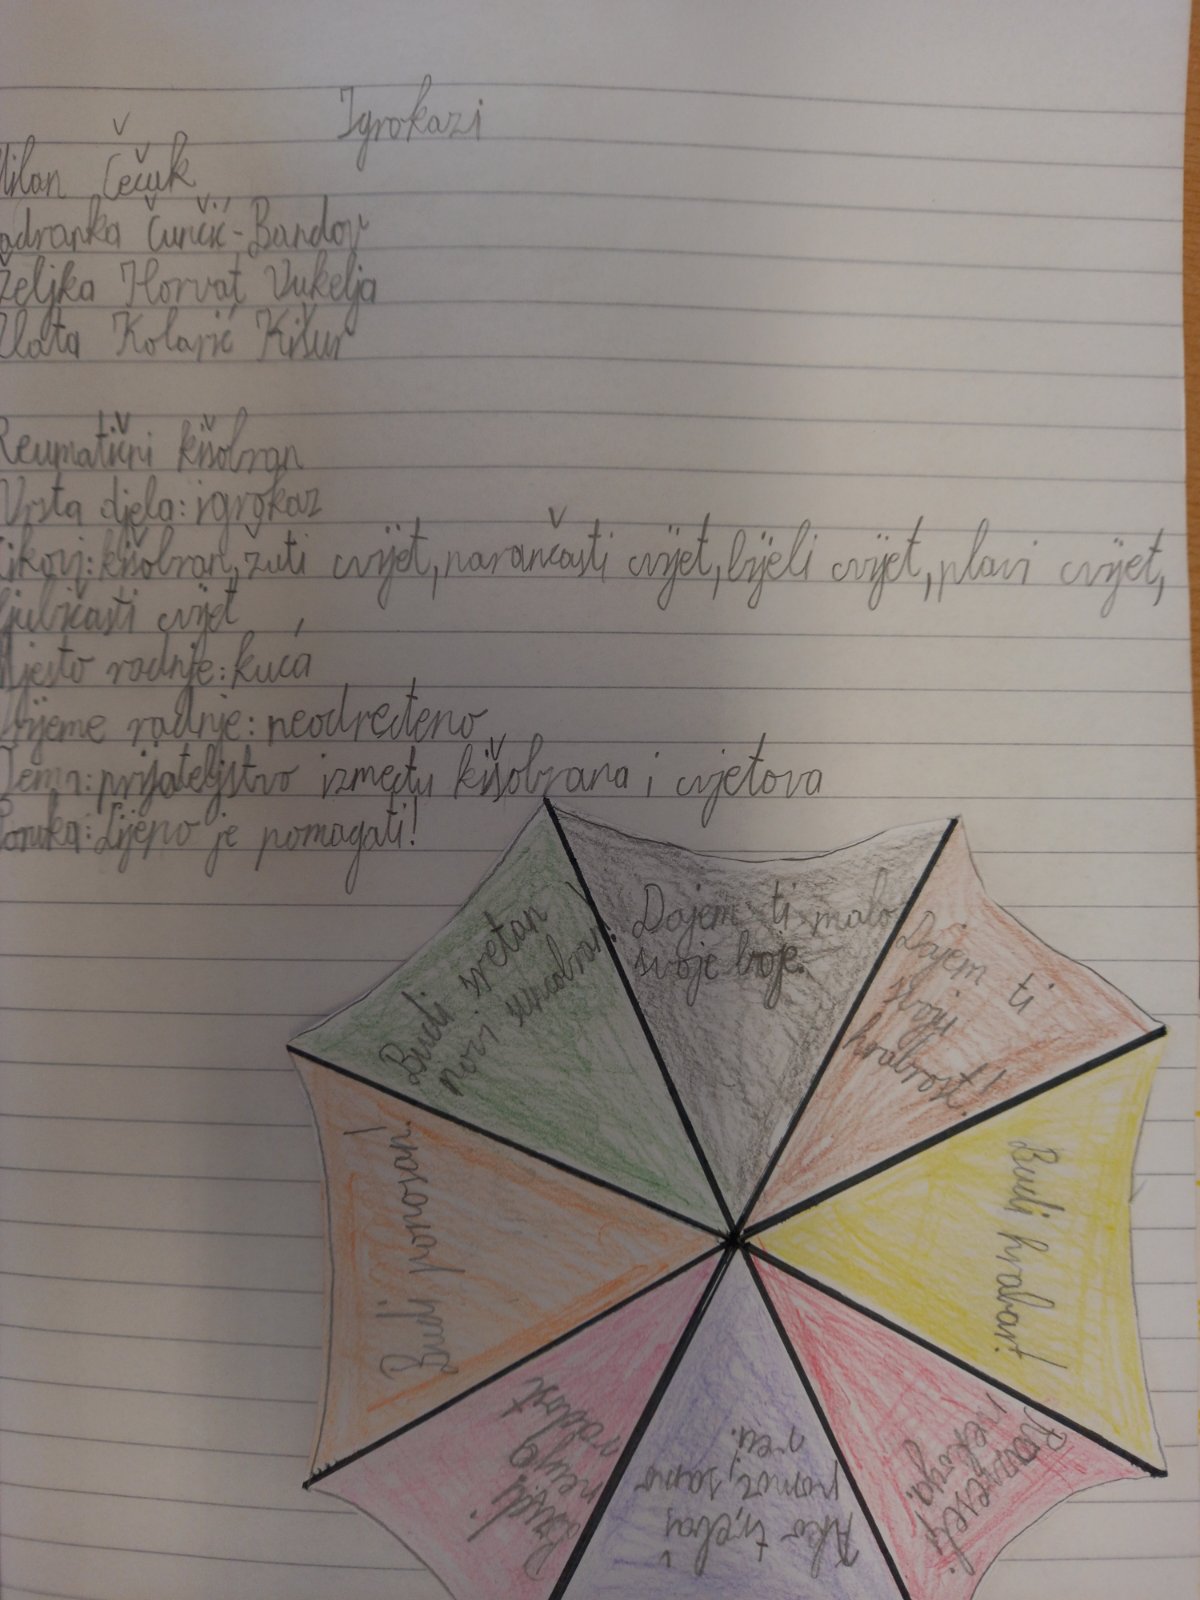 Igrokazi
Milan Čečuk
adranka Čunčić-Bandov
Željka Horvat Vukelja
Zlata Kolarić Kišur
Reumatični kišobran
Vrsta djela: igrokaz
Likovi: kišobran, žuti cvijet, narančasti cvijet, bijeli cvijet, plavi cvijet,
ljubičasti cvijet
Mjesto radnje: kuća
Vrijeme radnje: neodređeno
Tema: prijateljstvo između kišobrana i cvjetova
Poruka: Lijepo je pomagati!
Budi sretan
novi suncobran.
Dajem ti malo
svoje boje.
Dajem ti
svoju
hrabrost!
Budi hrabar!
Razveseli
nekoga!
Ako trebaš
pomoć, samo
reci.
Budi
nečija
radost
Budi ponosan!